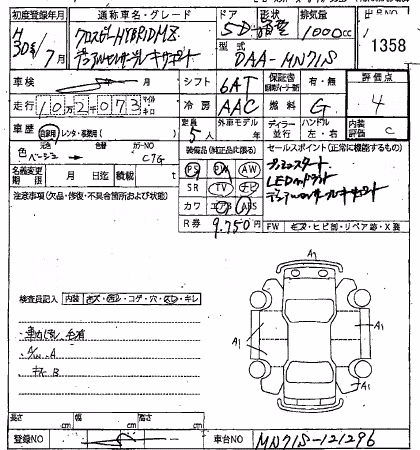 初度登録年月 通称車名・グレード ドア 形状 排気量 出品NO
H30年7月 クロスビーHYBRID MZ 5D 1000cc 1358
デュアルセンサーブレーキサポート 型式 DAA-MN71S
車検 年 月 シフト 6AT 保証書 有・無 評価点
走行 102,073 マイル キロ 冷房 AAC 燃料 G 4
車歴 自家用 レンタ・事業用 定員 5人 外車モデル 年 ディーラー 並行 ハンドル 左・右 内装評価 C
色 元色 ベージュ 色替 カラーNO C7G
装備品(純正品に限る) セールスポイント(正常に機能するもの)
名義変更期限 月 日迄 積載 t PS PW AW プッシュスタート
注意事項(欠品・修復・不具合箇所および状態) SR TV ナビ LEDヘッドライト
カワ エアB ABS デュアルセンサーブレーキサポート
R券 9,750円 FW キズ・ヒビ割・リペア跡・X換
A1
検査員記入 内装 キズ・汚レ・コゲ・穴・スレ・キレ
A1 A1
A/W A
キズ B
A1
長さ cm 幅 cm 高さ cm
登録NO 車台NO MN71S-121296